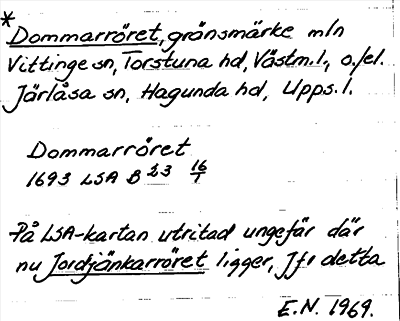 *
Dommarröret, gränsmärke mln
Vittinge sn, Torstuna hd, Västm.l., o./el.
Järlåsa sn, Hagunda hd, Upps.l.
Dommarröret
1693 LSA B 23 16/1
På LSA-kartan utritad ungefär där
nu Jordjänkarröret ligger, Jfr detta
E.N. 1969.